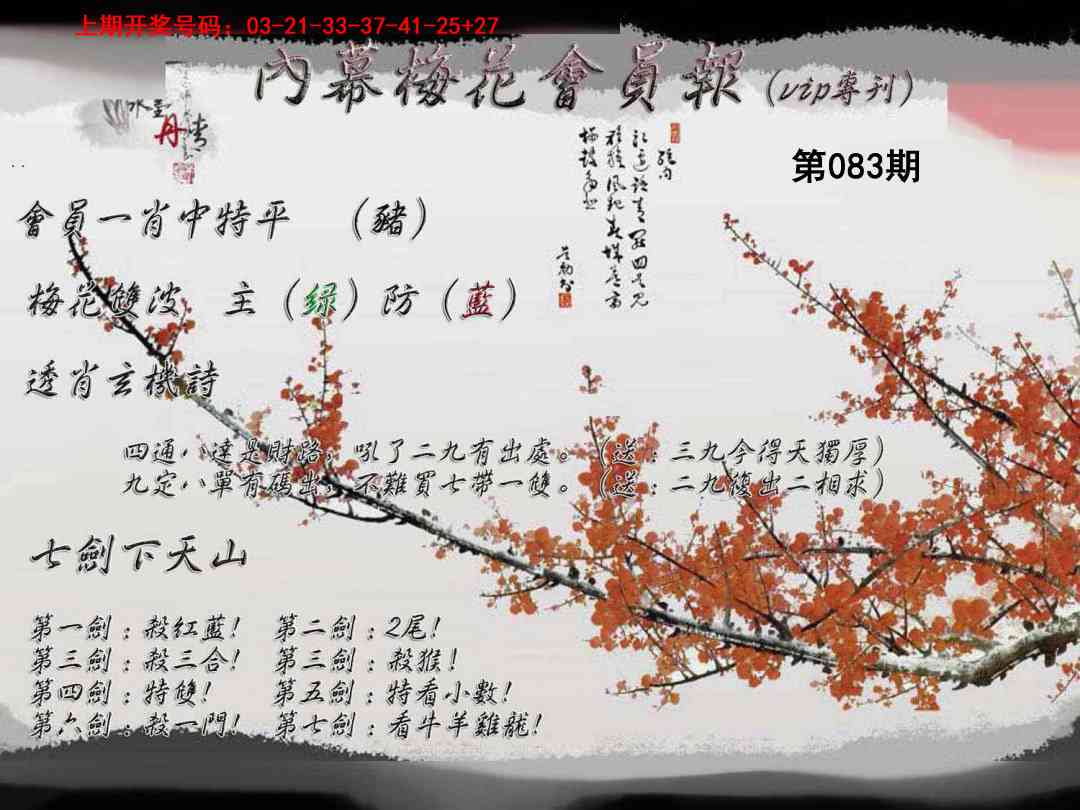 上期开奖号码：03-21-33-37-41-25+27
內幕梅花會員報（vip專刊）
丹青
第083期
會員一肖中特平　（豬）
梅花雙波　主（绿）防（藍）
透肖玄機詩
四通八達是財路，吼了二九有出處。（送：三九今得天獨厚）
九定八單有碼出，不難買七帶一雙。（送：二九復出二相求）
七劍下天山
第一劍：殺紅藍！　第二劍：2尾！
第三劍：殺三合！　第三劍：殺猴！
第四劍：特雙！　第五劍：特看小數！
第六劍：殺一門！　第七劍：看牛羊雞龍！